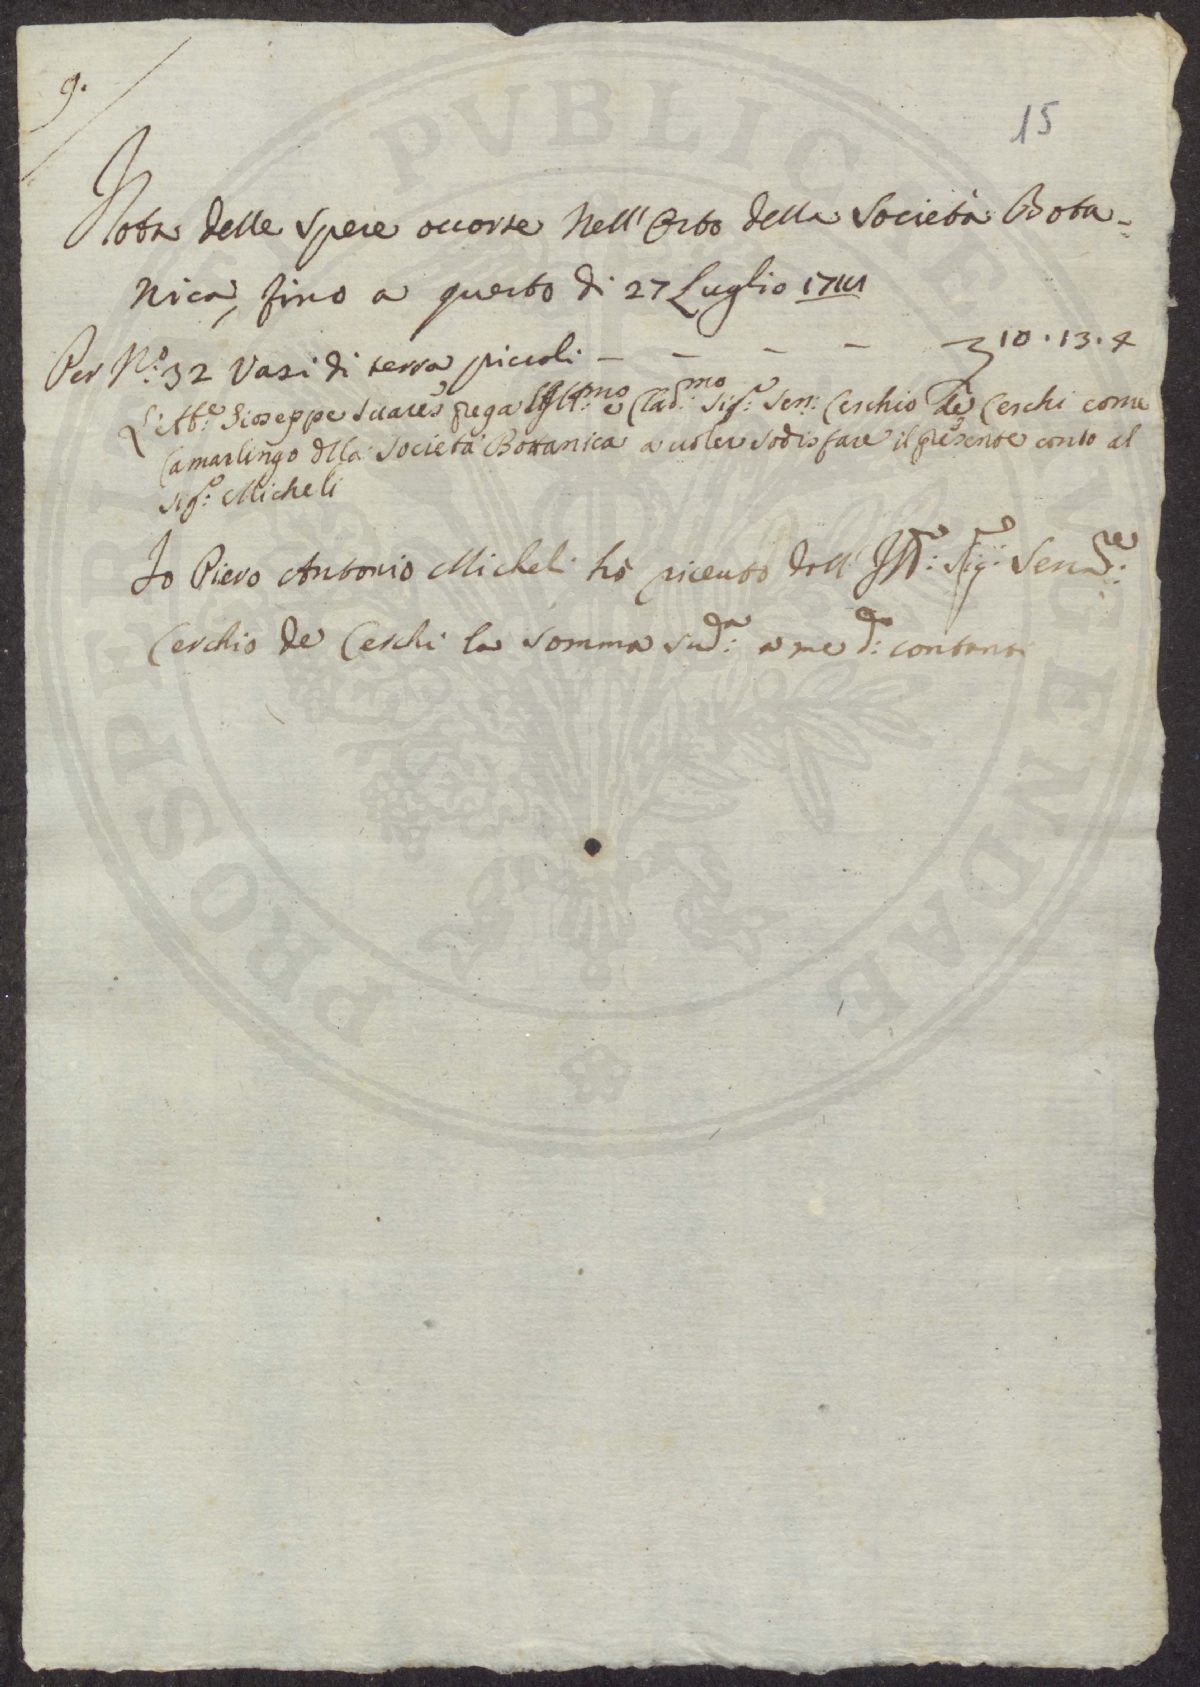 9.
15
Nota delle spese occorse Nell'Orto della Società Bota-
nica, fino a questo di 27 Luglio
Per N.° 32 Vasi di terra piccoli — — — — 10.13.4
L'Ab.e Gioseppe Suares prega e Clad.mo Sig.e Sen: Cerchio de Cerchi come
Camarlingo dlla Società Bottanica a voler sodisfare il presente conto al
Sig.e Micheli
Io Piero Antonio Micheli hò riceuto dall' Ill.e Sig.e Sen.re
Cerchio de Cerchi la somma sud.a a me d.o contanti
PROSPERITATI PVBLICAE AVGENDAE